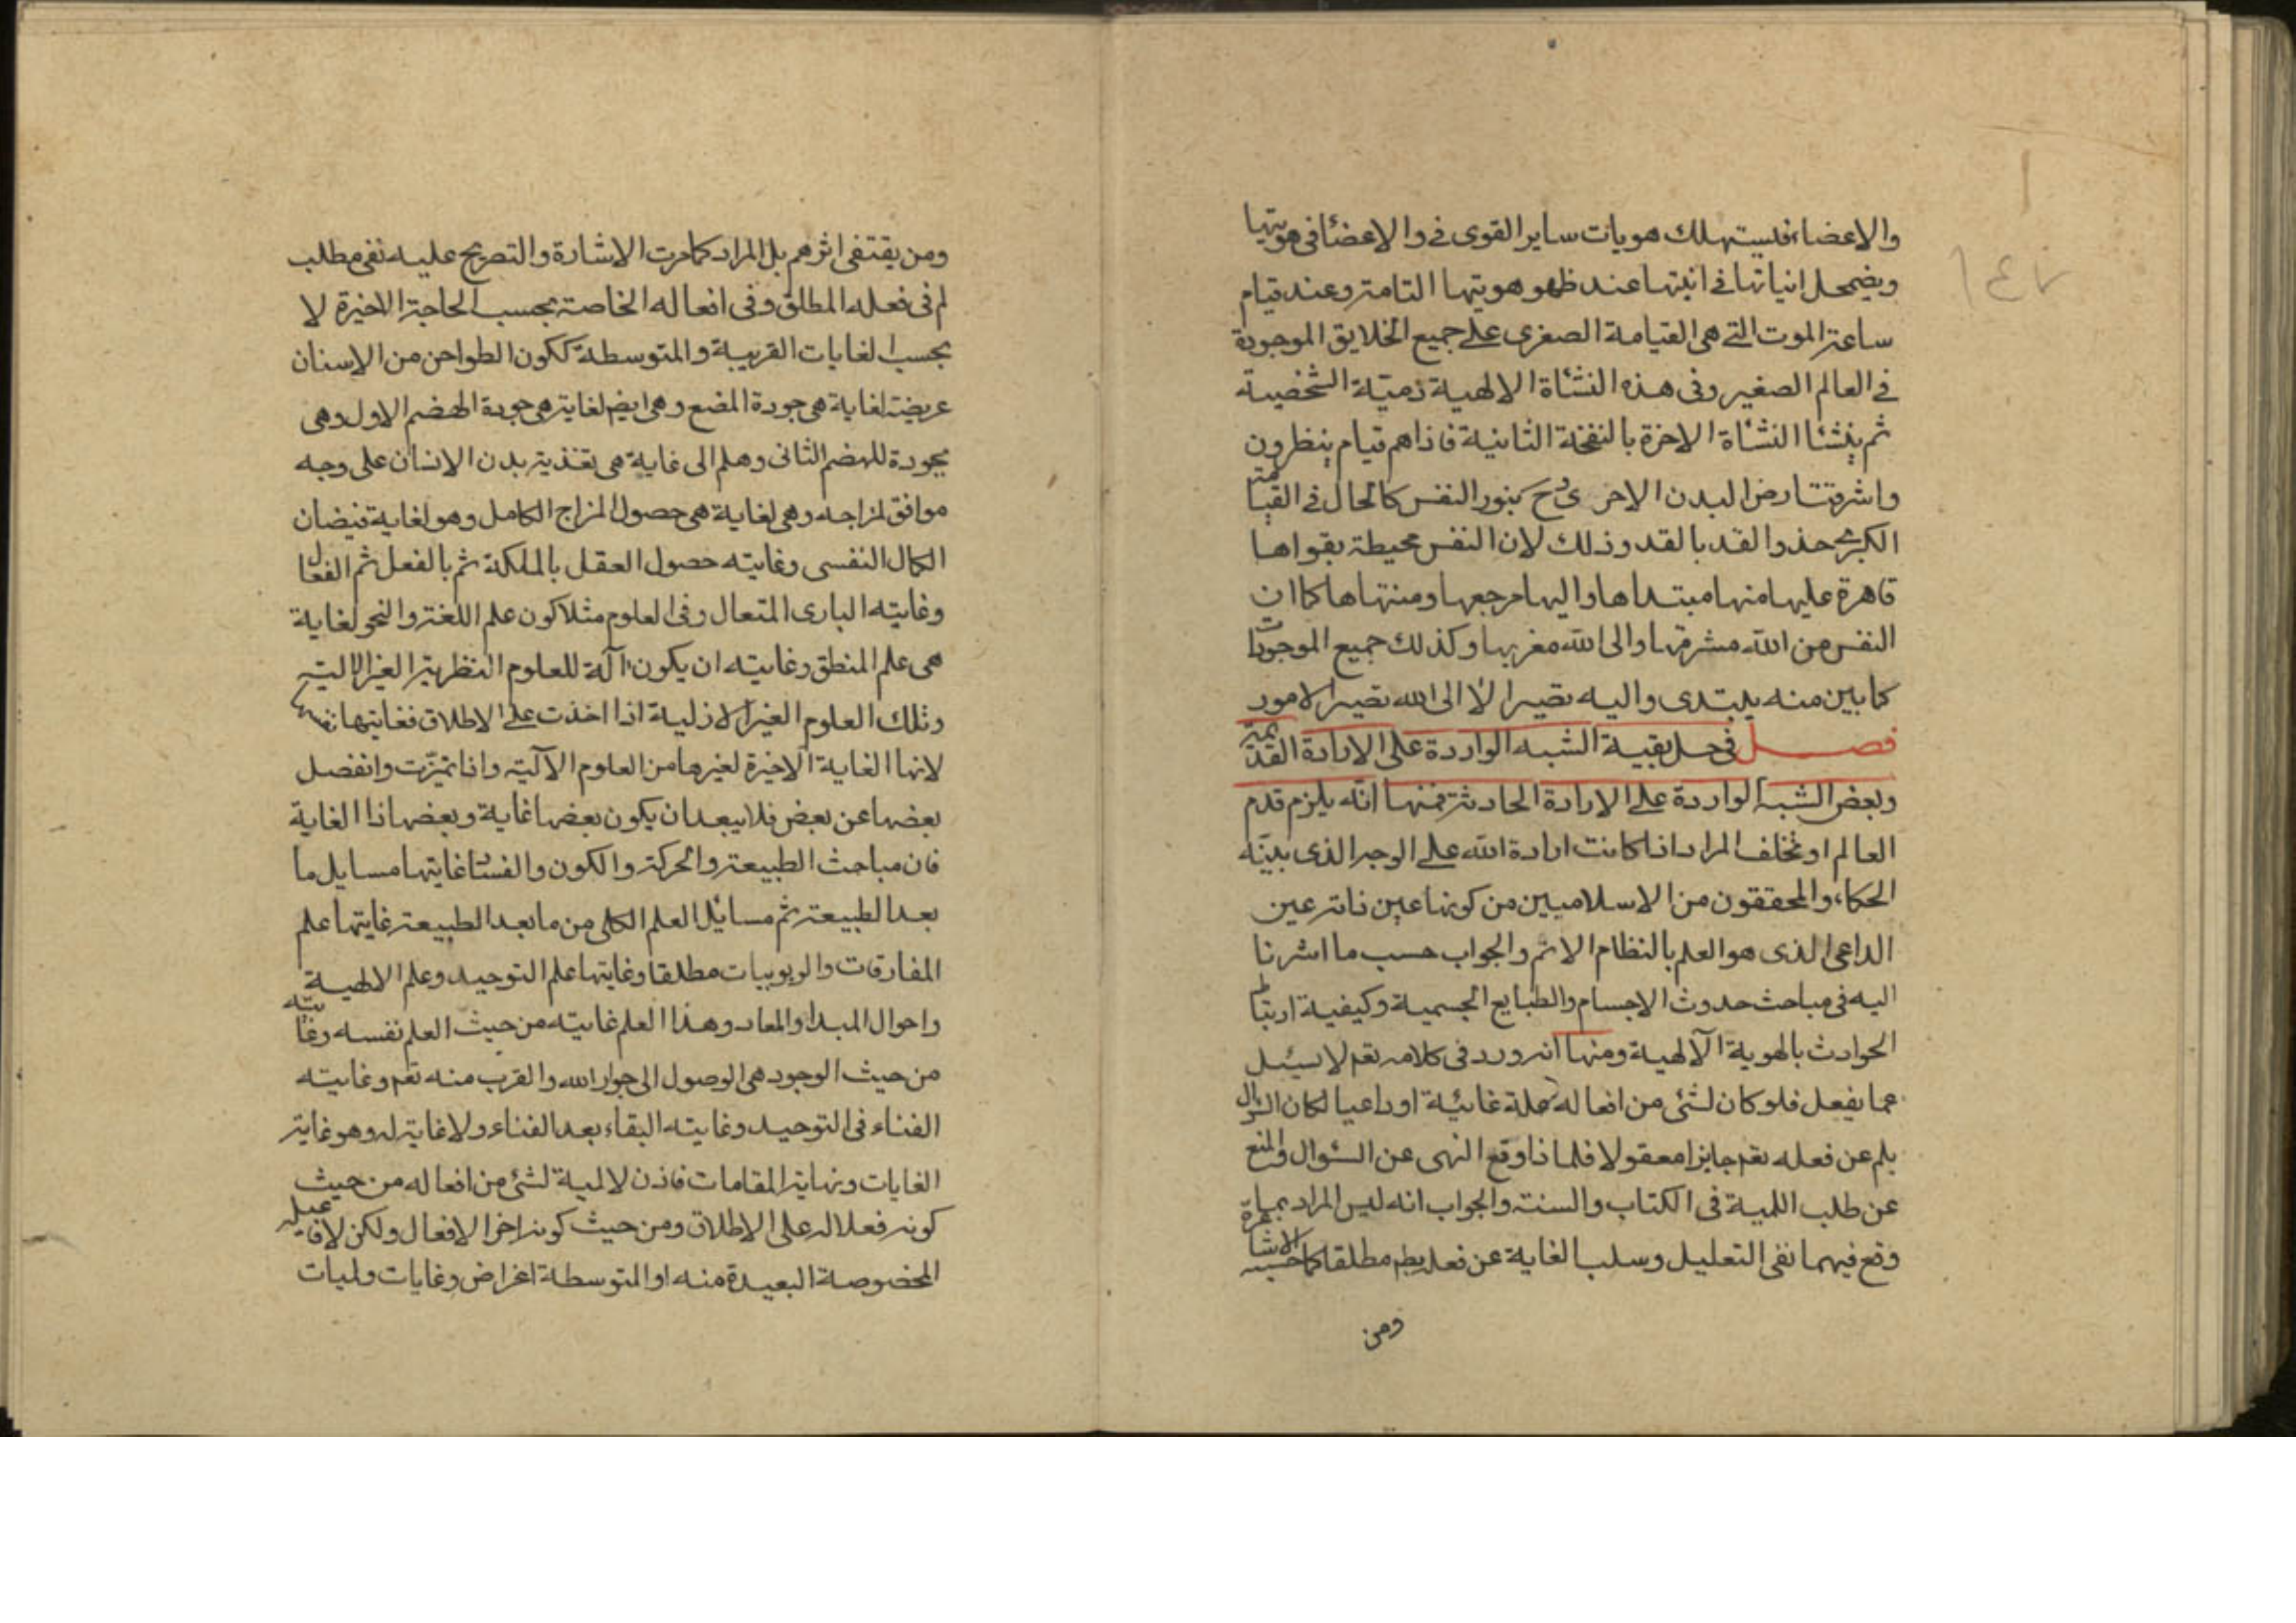 والاعضاء فيستهلك هويات ساير القوى فى والاعضا فى هويتها
ويضمحل انياتها فى انيتها عند ظهو هويتها التامة وعند قيام
ساعة الموت التى هى القيامة الصغرى على جميع الخلايق الموجودة
فى العالم الصغير وفى هذه النشأة الالهية الشخصية
ثم ينشئا النشأة الاخرة بالنفخة الثانية فاذا هم قيام ينظرون
واشرقت ارض البدن الاخروى ح بنور النفس كالحال فى القيامة
الكبرى حذو القد بالقد وذلك لان النفس محيطة بقواها
قاهرة عليها منها مبتداها واليها مرجعها ومنتهاها كما ان
النفس من الله مشرقها والى الله مغربها وكذلك جميع الموجودات
كما بين منه يبتدى واليه تصير الا الى الله تصير الامور
فصل فى حل بقية الشبه الواردة على الارادة القديمة
وبعض الشبه الواردة على الارادة الحادثة فمنها انه يلزم قدم
العالم او تخلف المراد اذا كانت ارادة الله على الوجه الذى بينه
الحكماء والمحققون من الاسلاميين من كونها عين ذاته عين
الداعى الذى هو العلم بالنظام الاتم والجواب حسب ما اشرنا
اليه فى مباحث حدوث الاجسام والطبايع الجسمية وكيفية ارتباط
الحوادث بالهوية الآلهية ومنها انه ورد فى كلامه تعم لا يسئل
عما يفعل فلو كان لشئ من افعاله علة غائية او داعيا لكان السؤال
بلم عن فعله تعم جايزا معقولا فلماذا وقع النهى عن السئوال والمنع
عن طلب اللمية فى الكتاب والسنة والجواب انه ليس المراد بما
وقع فيهما نفى التعليل وسلب الغاية عن فعله مطلقا كما حسبه الاشاعرة
ومن
١٤٧
ومن يقتفى اثرهم بل المراد كما مرت الاشارة والتصريح عليه نفى مطلب
لم فى فعله المطلق وفى افعاله الخاصة بحسب الحاجة الاخيرة لا
بحسب الغايات القريبة والمتوسطة ككون الطواحن من الاسنان
عريضة لغاية هى جودة المضع وهى ايضم لغاية هى جودة الهضم الاول وهى
بجودة للهضم الثانى وهلم الى غاية هى تغذية بدن الانسان على وجه
موافق لمزاجه وهى لغاية هى حصول المزاج الكامل وهو لغاية فيضان
الكمال النفسى وغايته حصول العقل بالملكة ثم بالفعل ثم الفعال
وغايته البارى المتعال وفى العلوم مثلا كون علم اللغة والنحو لغاية
هى علم المنطق وغايته ان يكون آلة للعلوم النظرية الغير الالية
وتلك العلوم الغير الازلية اذا اخذت على الاطلاق فغايتها نفسها
لانها الغاية الاخيرة لغيرها من العلوم الآلية واذا تميّزت وانفصل
بعضها عن بعض فلا يبعد ان يكون بعضها غاية وبعضها ذا الغاية
فان مباحث الطبيعة والحركة والكون والفساد غايتها مسايل ما
بعد الطبيعة ثم مسائل العلم الكلى من ما بعد الطبيعة غايتها علم
المفارقات والربوبيات مطلقا وغايتها علم التوحيد وعلم الالهية
واحوال المبداء والمعاد وهذا العلم غايته من حيث العلم نفسه وغايته
من حيث الوجود هى الوصول الى جوار الله والقرب منه تعم وغايته
الفناء فى التوحيد وغايته البقاء بعد الفناء ولا غاية له وهو غاية
الغايات ونهاية المقامات فاذن لا لمية لشئ من افعاله من حيث
كونه فعلا له على الاطلاق ومن حيث كونه اخر الافعال ولكن لافاعيله
المخصوصة البعيدة منه او المتوسطة اغراض وغايات ولميات